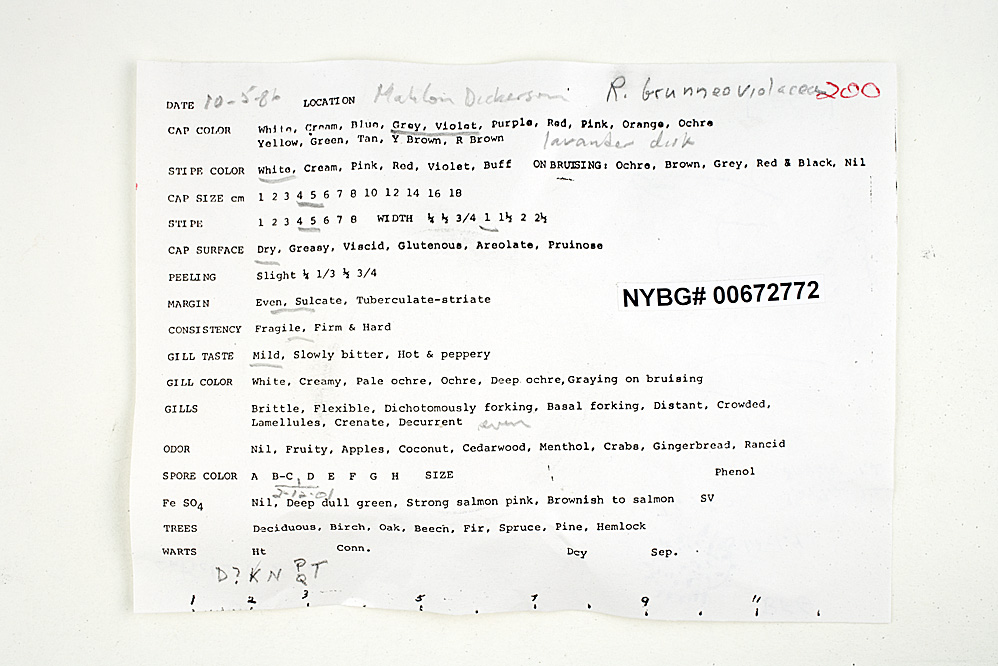 DATE 10-5-86 LOCATION Mahlon Dickerson R. brunneoviolacea 200
CAP COLOR White, Cream, Blue, Grey, Violet, Purple, Red, Pink, Orange, Ochre
Yellow, Green, Tan, Y Brown, R Brown lavander disk
STIPE COLOR White, Cream, Pink, Red, Violet, Buff ON BRUISING: Ochre, Brown, Grey, Red & Black, Nil
CAP SIZE cm 1 2 3 4 5 6 7 8 10 12 14 16 18
STIPE 1 2 3 4 5 6 7 8 WIDTH ¼ ½ 3/4 1 1½ 2 2½
CAP SURFACE Dry, Greasy, Viscid, Glutenous, Areolate, Pruinose
PEELING Slight ¼ 1/3 ½ 3/4
NYBG# 00672772
MARGIN Even, Sulcate, Tuberculate-striate
CONSISTENCY Fragile, Firm & Hard
GILL TASTE Mild, Slowly bitter, Hot & peppery
GILL COLOR White, Creamy, Pale ochre, Ochre, Deep ochre, Graying on bruising
GILLS Brittle, Flexible, Dichotomously forking, Basal forking, Distant, Crowded,
Lamellules, Crenate, Decurrent even
ODOR Nil, Fruity, Apples, Coconut, Cedarwood, Menthol, Crabs, Gingerbread, Rancid
SPORE COLOR A B-C, D E F G H SIZE Phenol
Fe SO4 Nil, Deep dull green, Strong salmon pink, Brownish to salmon SV
TREES Deciduous, Birch, Oak, Beech, Fir, Spruce, Pine, Hemlock
WARTS Ht Conn. Dcy Sep.
D? K N P Q T
1 2 3 5 7 9 11